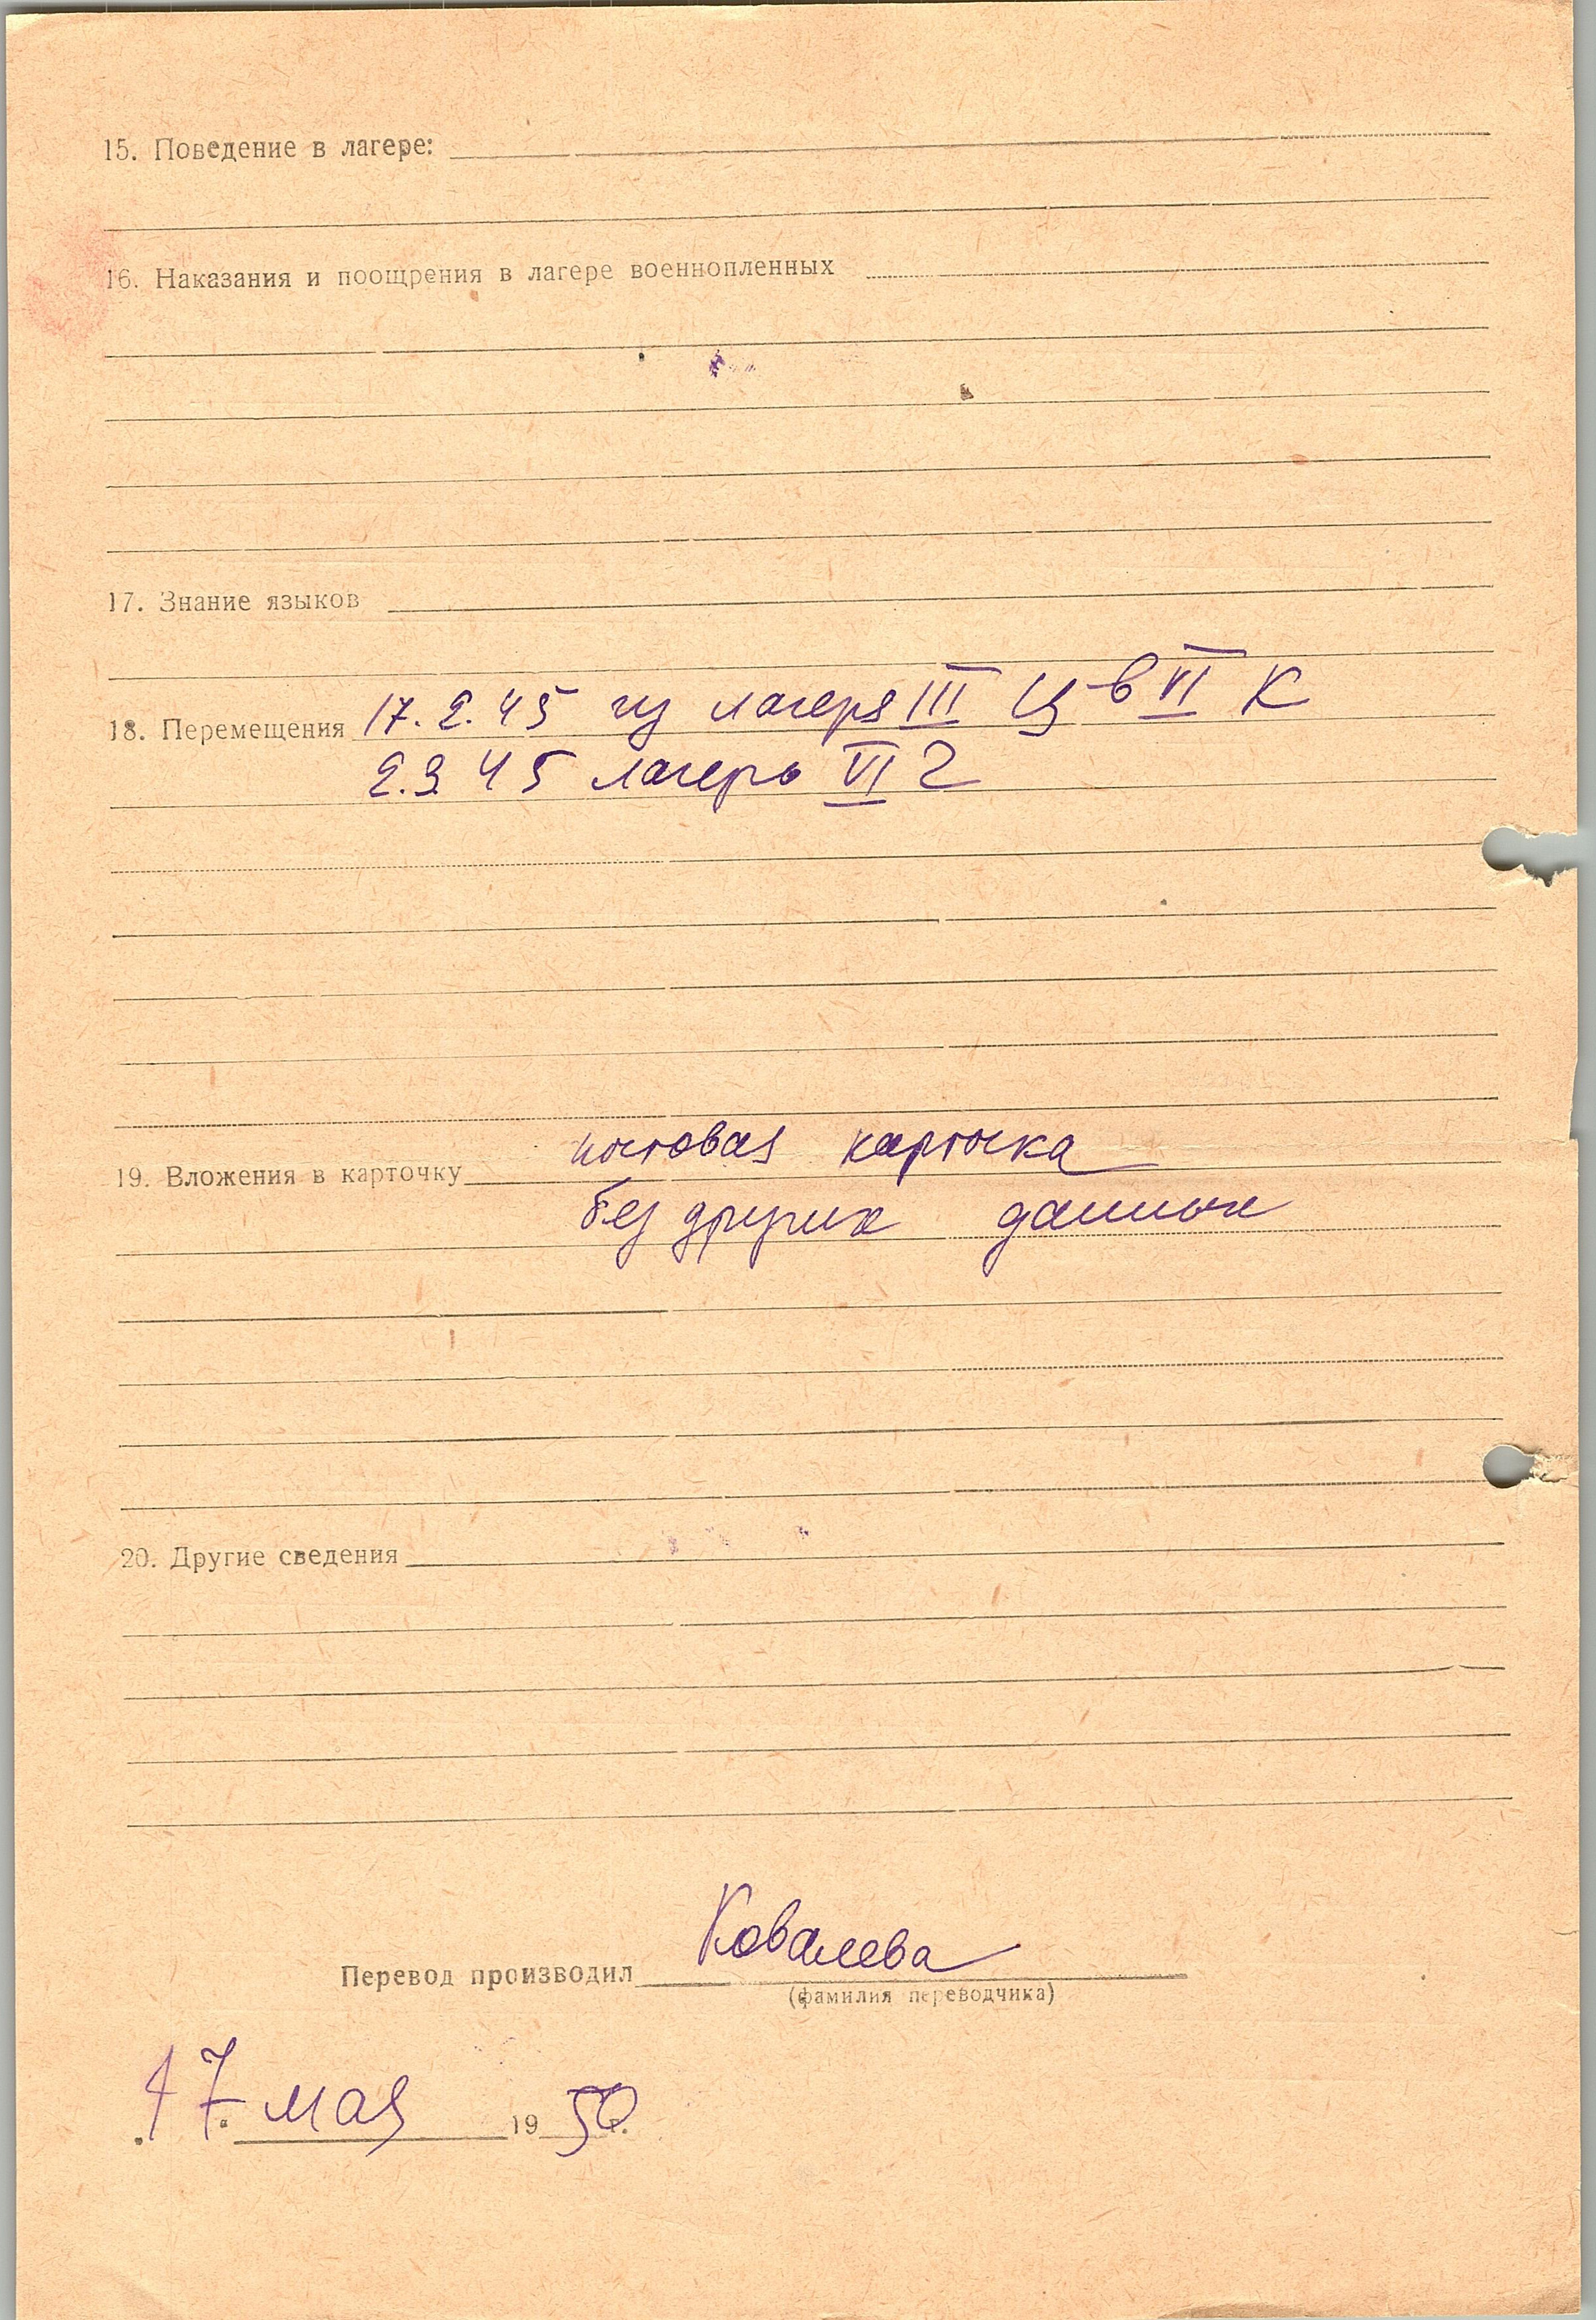 15. Поведение в лагере:
16. Наказания и поощрения в лагере военнопленных
17. Знание языков
18. Перемещения 17.2.45 из лагеря III Ц в VI К
2.3.45 лагерь VI Г
19. Вложения в карточку почтовая карточка
без других данных
20. Другие сведения
Перевод производил Ковалева
(фамилия переводчика)
17 мая 1950 г.